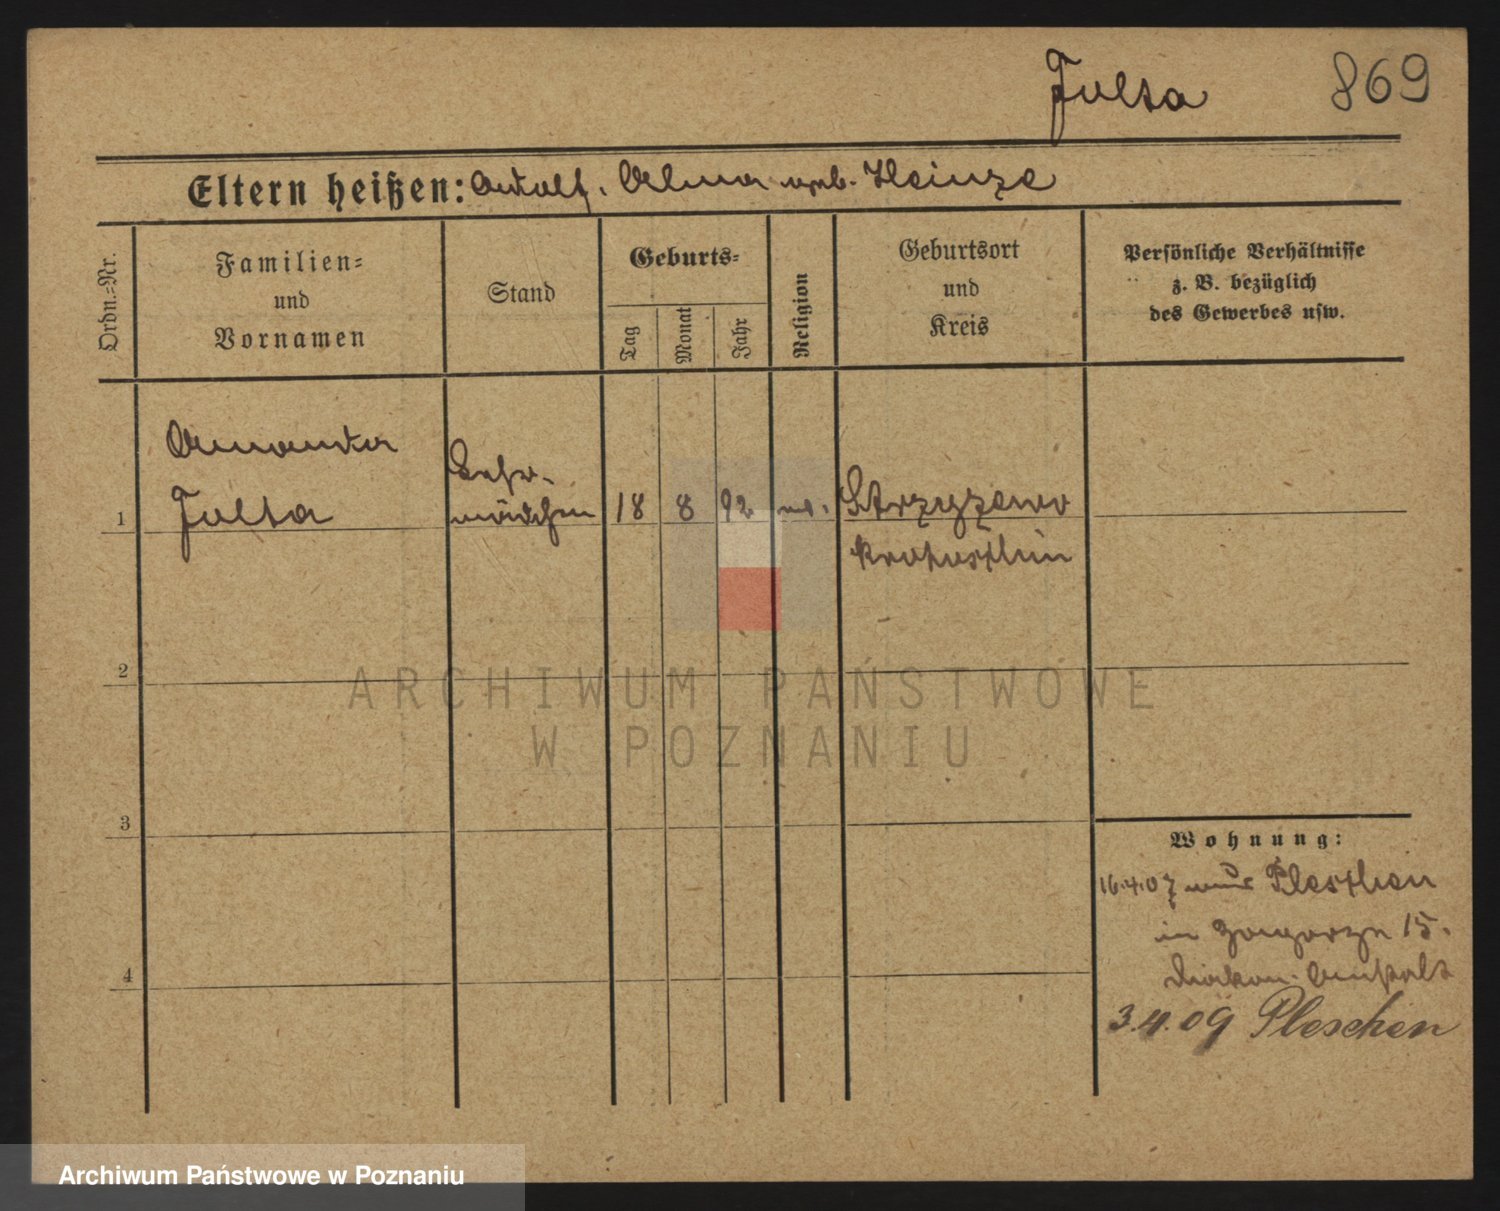 Julta 869
Eltern heißen: Adolf. Alma geb. Heinze
Ordn.-Nr.
Familien-
und
Vornamen
Stand
Geburts-
Tag
Monat
Jahr
Religion
Geburtsort
und
Kreis
Persönliche Verhältnisse
z. B. bezüglich
des Gewerbes usw.
Amanda
Lehr-
1 Julta mädchen 18 8 92 ev. Strzyzewo
Krotoschin
2
ARCHIWUM PAŃSTWOWE
W POZNANIU
3
Wohnung:
16.4.07 aus Pleschen
in 15.
4
Diakon. Anstalt
3.4.09 Pleschen
Archiwum Państwowe w Poznaniu